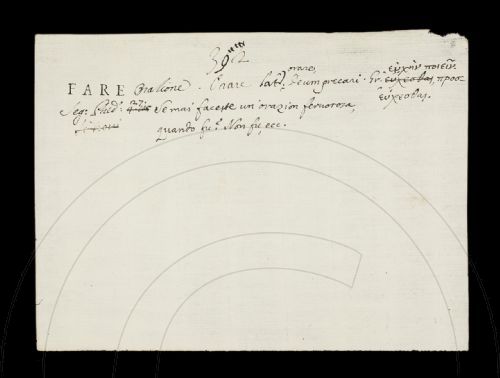 FARE Orazione. Orare. Lat. orare, Deum precari. Gr. εὐχὴν ποιεῖν, εὔχεσθαι προσ
εύχεσθαι.
Segn. Pred.
Se mai faceste un' orazion fervorosa,
quando fu? Non fu, ecc.